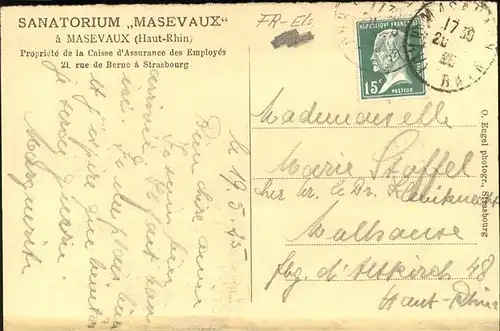 SANATORIUM „MASEVAUX“
à MASEVAUX (Haut-Rhin)
Propriété de la Caisse d'Assurance des Employés
21, rue de Berne à Strasbourg
FR-Els
17 30
RÉPUBLIQUE FRANÇAISE
15c
PASTEUR
MASEVAUX
17 30
20
RHIN
O. Engel photogr., Strasbourg
le 19.5.25
Bien chère amie
Je suis bien
arrivée
et j'espère que bientôt
je serai guérie.
Marguerite
Mademoiselle
Marie Staffel
chez Mr. le Dr.
Mulhouse
fbg. d'Altkirch 48
Haut-Rhin